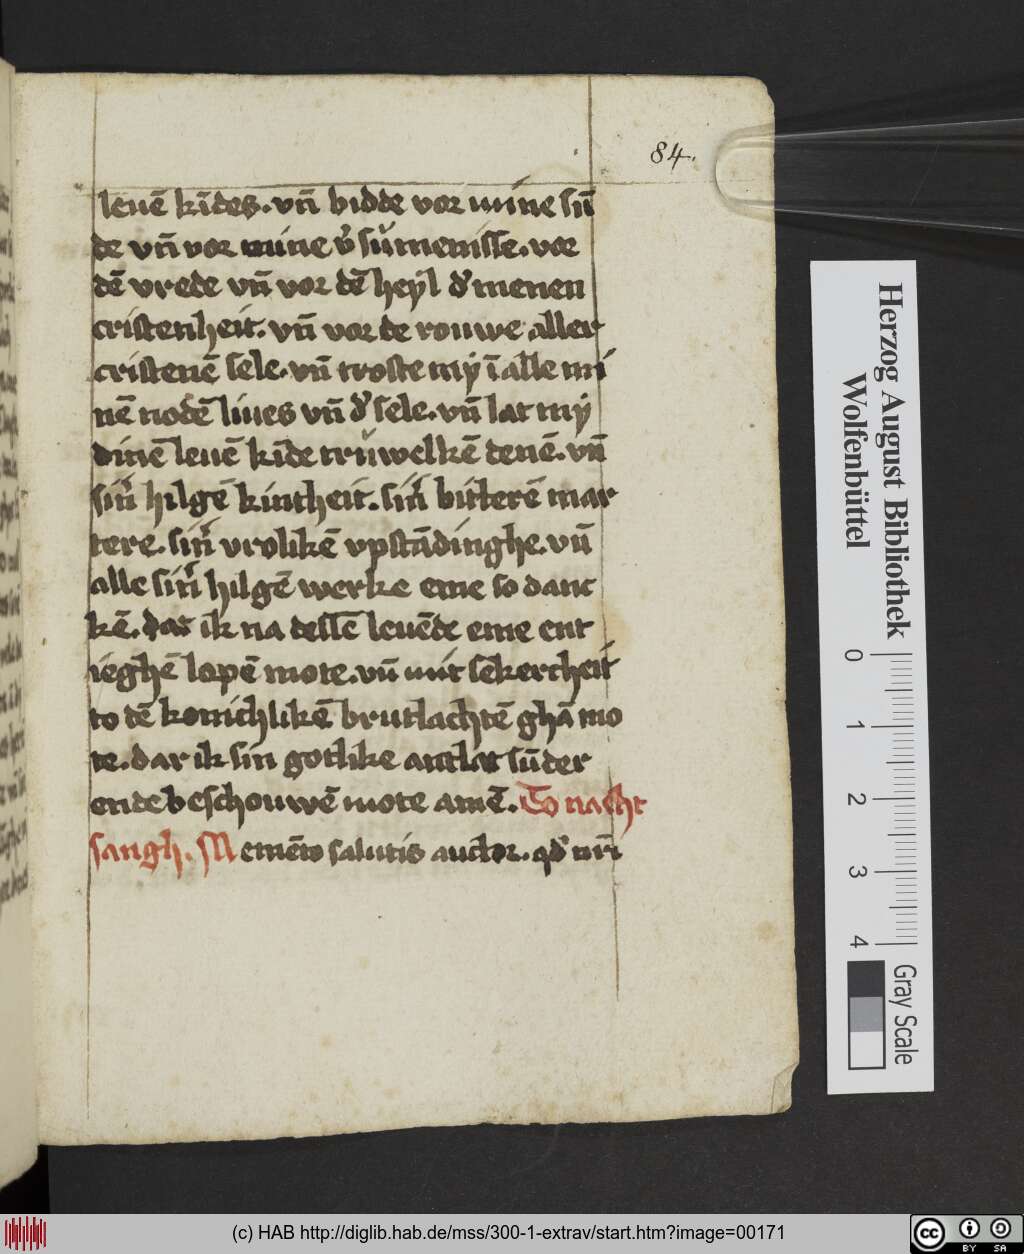 84.
leuē kīdes. vn̄ bidde vor mine sū
de vn̄ vor mine v̓sümenisse. vor
dē vrede vn̄ vor dē heyl d̓ menen
cristenheit. vn̄ vor de rouwe aller
cristenē sele. vn̄ troste mÿ ī alle mi
nē nodē liues vn̄ d̓ sele. vn̄ lat mÿ
dinē leuē kīde trüwelkē denē. vn̄
sin̓ hilgē kintheit. sin̓ bitterē mar
tere. sin̓ vrolikē vpstādinghe. vn̄
alle sin̓ hilgē werke eme so danc
kē. dat ik na dessē leuēde eme ent
ieghē lopē mote. vn̄ mit sekercheit
to dē konichlikē brutlachtē ghā mo
te. dar ik sin gotlike antlat sūder
ende beschouwē mote amē. To nacht
sangh. Memēto salutis auctor. qd̓ nr̄i
Herzog August Bibliothek
Wolfenbüttel
0 1 2 3 4
Gray Scale
(c) HAB http://diglib.hab.de/mss/300-1-extrav/start.htm?image=00171
cc BY SA